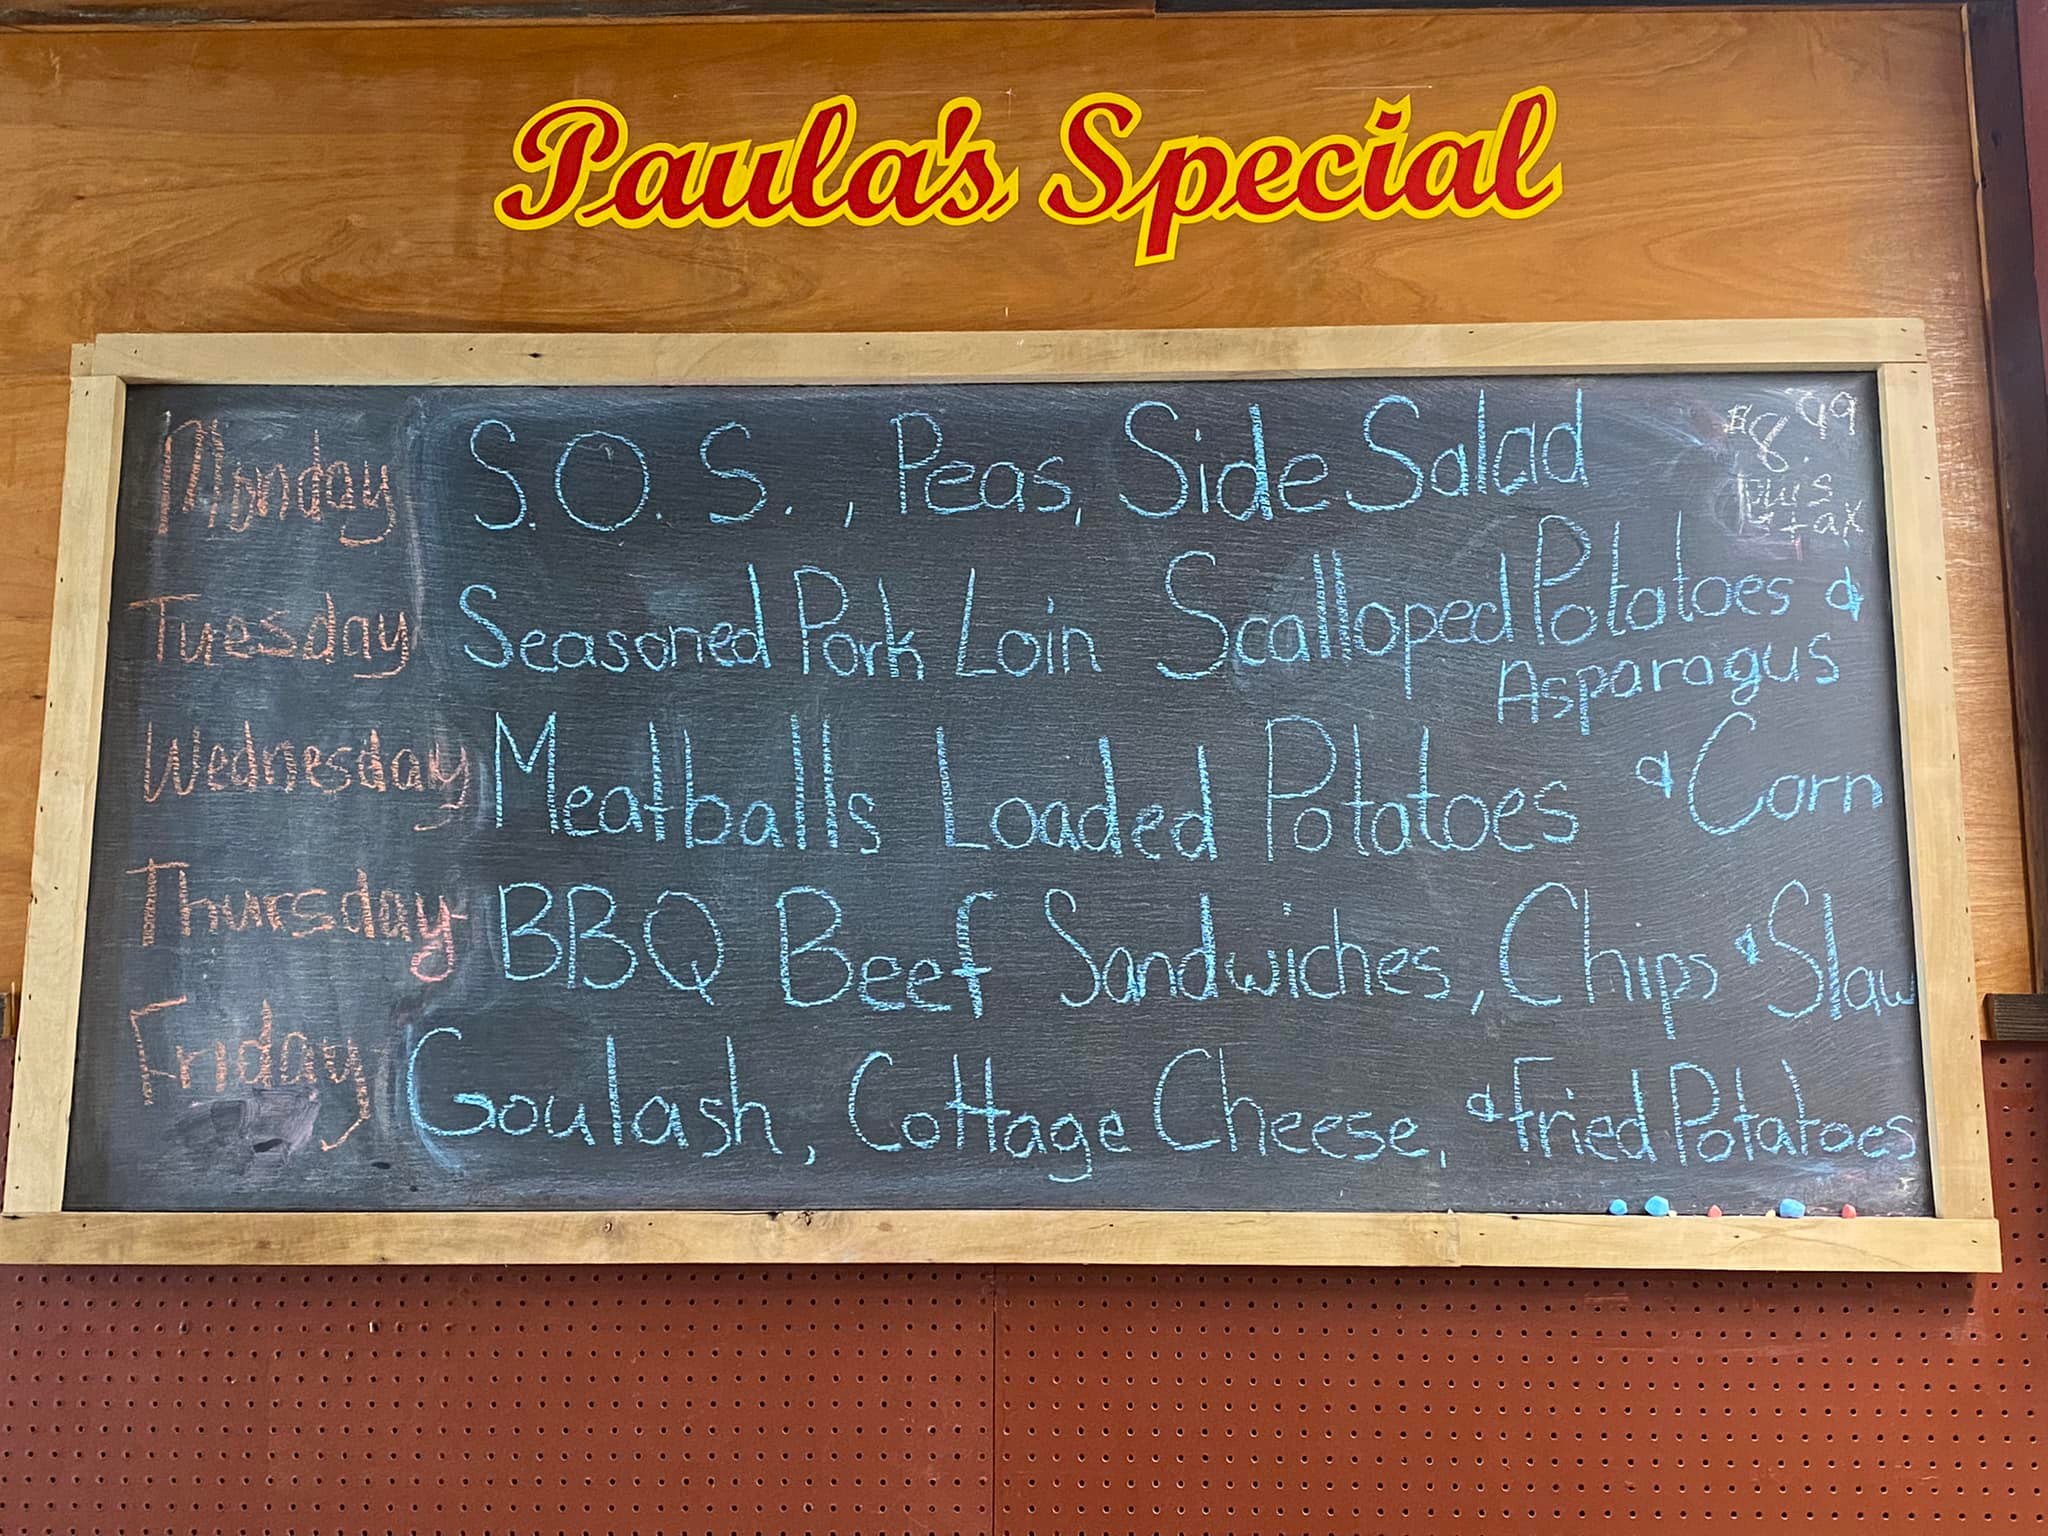 Paula's Special
Monday S.O.S., Peas, Side Salad $8.99
plus tax
Tuesday Seasoned Pork Loin Scalloped Potatoes &
Asparagus
Wednesday Meatballs Loaded Potatoes & Corn
Thursday BBQ Beef Sandwiches, Chips & Slaw
Friday Goulash, Cottage Cheese, & Fried Potatoes